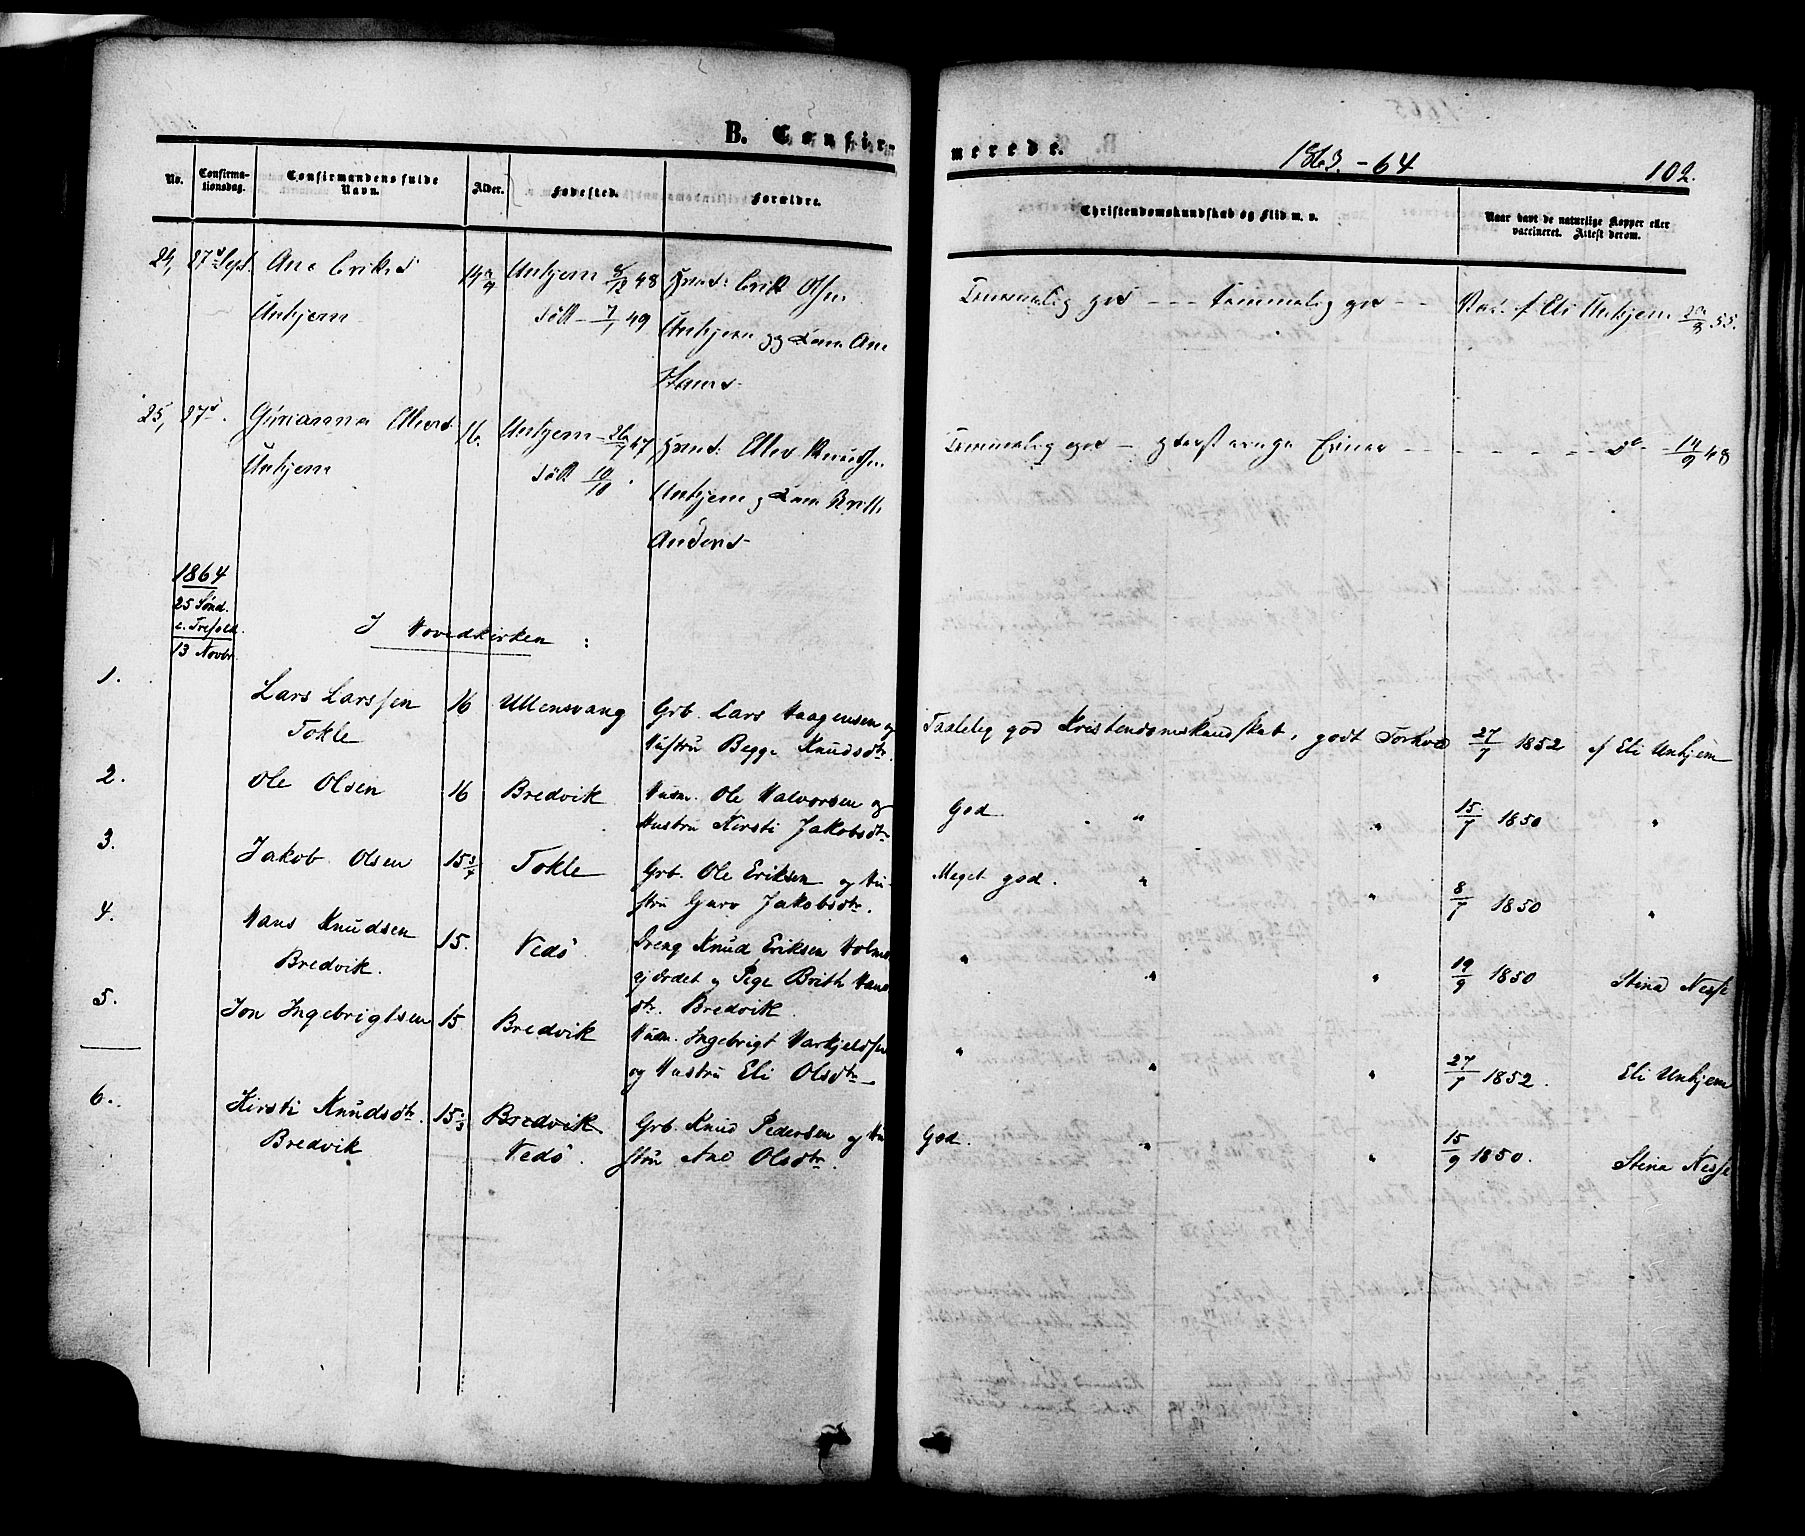 B. Confirmerede.
1863.-64
102.
No.
Confirmationsdag.
Confirmandens fulde Navn.
Alder.
Fødested.
Forældre.
Christendomskundskab og Flid m. v.
Naar havt de naturlige Kopper eller vaccineret. Attest derom.
24, 27d Sept. Ane Eriksd Unhjem 8/12 48 Erik Olsen
Unhjem døbt 7/1 49 Unhjem og Ane
Hansd
Temmelig god - - - Temmelig god - - Eli Unhjem 55.
25, 27d. Ellevsd 16. Unhjem 47 Ellev Knudsen
Unhjem døbt Unhjem og Britt
Andersd
Temmelig god - - - - - - do - 14/9 48
1864
25 Sønd.
e. Trefold.
13 Novbr
I Hovedkirken :
1. Lars Larssen 16 Ullensvang Grb. Lars Haagensen og
Tokle Hustru Begge Knudsdtr.
Taalelig god Kristendomskundskab, godt Forhold 27/7 1852 f Eli Unhjem
2. Ole Olsen 16 Bredvik Husm. Ole Halvorsen og
Hustru Kirsti Jakobsdtr
God. " " 15/7 1850 "
3. Jakob Olsen 15 3/4 Tokle Grb. Ole Eriksen og Hu-
stru Guro Jakobsdtr.
Meget god. " " 8/7 1850 "
4. Hans Knudsen 15. Vedö Dreng Knud Eriksen Holme-
Bredvik. gjærdet og Pige Brith Hans
dtr. Bredvik.
" " " 19/9 1850 Stina Nesse
5. Jon Ingebrigtsen 15 Bredvik Husm. Ingebrigt
og Hustru Eli Olsdtr
" " " 27/7 1852. Eli Unhjem
6. Kirsti Knudsdtr. 15 Bredvik Grb. Knud Pedersen og Hu
Bredvik Vedö. stru Ane Olsdtr.
God. " " 15/9 1850. Stina Nesse